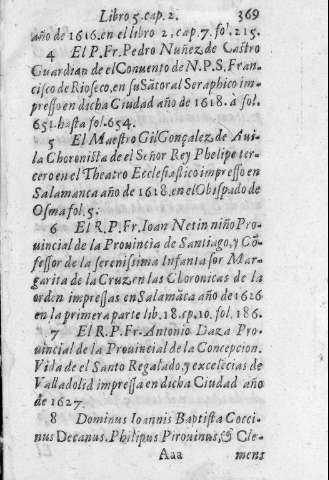 Libro 5. cap. 2. 369
año de 1616. en el libro 2. cap. 7. fol. 215.
4 El P. Fr. Pedro Nuñez de Castro
Guardian de el Conuento de N. P. S. Fran-
cisco de Rioseco, en su Sātoral Seraphico im-
presso en dicha Ciudad año de 1618. à fol.
651. hasta fol. 654.
5 El Maestro Gil Gonçalez de Aui-
la Choronista de el Señor Rey Phelipe ter-
cero en el Theatro Ecclesiastico impresso en
Salamanca año de 1618. en el Obispado de
Osma fol. 5.
6 El R. P. Fr. Ioan Netin niño Pro-
uincial de la Prouincia de Santiago, y Cō-
fessor de la serenissima Infanta sor Mar-
garita de la Cruz, en las Choronicas de la
orden impressas en Salamāca año de 1626
en la primera parte lib. 18. cp. 10. fol. 186.
7 El R. P. Fr. Antonio Daza Pro-
uincial de la Prouincial de la Concepcion.
Vida de el Santo Regalado, y excelēcias de
Valladolid impressa en dicha Ciudad año
de 1627.
8 Dominus Ioannis Baptista Cocci-
nus Decanus. Philipus Pirouinus, & Cle-
Aaa mens